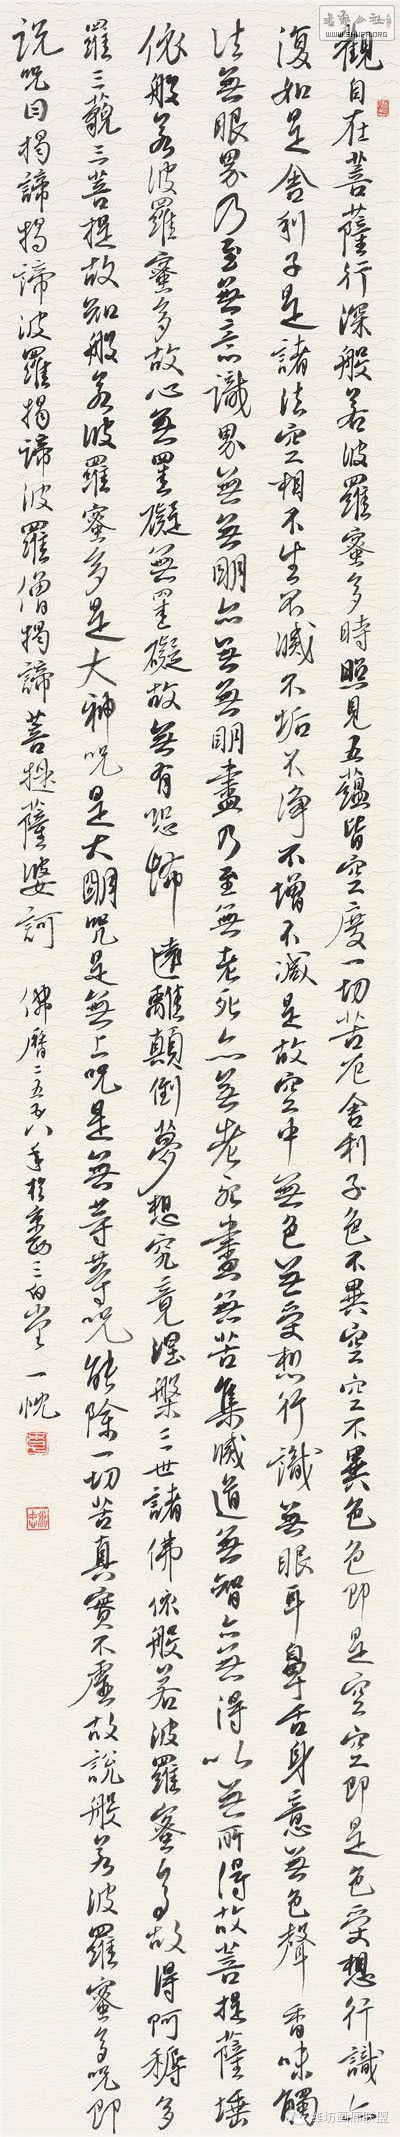 觀自在菩薩行深般若波羅蜜多時照見五蘊皆空度一切苦厄舍利子色不異空空不異色色即是空空即是色受想行識亦
復如是舍利子是諸法空相不生不滅不垢不淨不增不減是故空中無色無受想行識無眼耳鼻舌身意無色聲香味觸
法無眼界乃至無意識界無無明亦無無明盡乃至無老死亦無老死盡無苦集滅道無智亦無得以無所得故菩提薩埵
依般若波羅蜜多故心無罣礙無罣礙故無有恐怖遠離顛倒夢想究竟涅槃三世諸佛依般若波羅蜜多故得阿耨多
羅三藐三菩提故知般若波羅蜜多是大神咒是大明咒是無上咒是無等等咒能除一切苦真實不虛故說般若波羅蜜多咒即
説咒曰揭諦揭諦波羅揭諦波羅僧揭諦菩提薩婆訶 佛曆二五五八年於京西三白堂一忱
書藝公社
WWW.SHUFA.ORG
潍坊画廊联盟